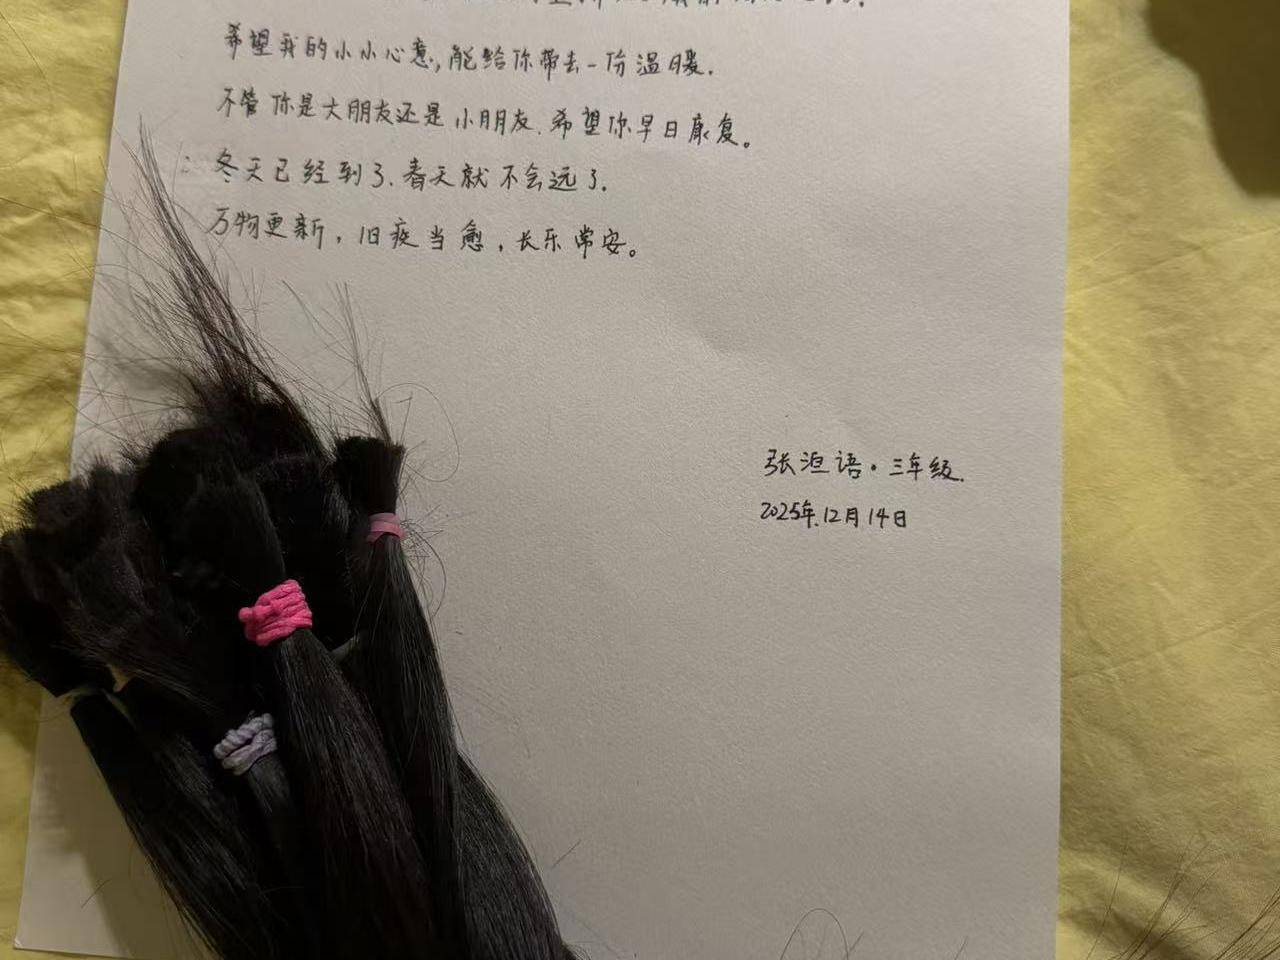 希望我的小小心意,能给你带去一份温暖.
不管你是大朋友还是小朋友.希望你早日康复。
冬天已经到了.春天就不会远了.
万物更新,旧疾当愈,长乐常安。
张洹语·三年级.
2025年.12月14日